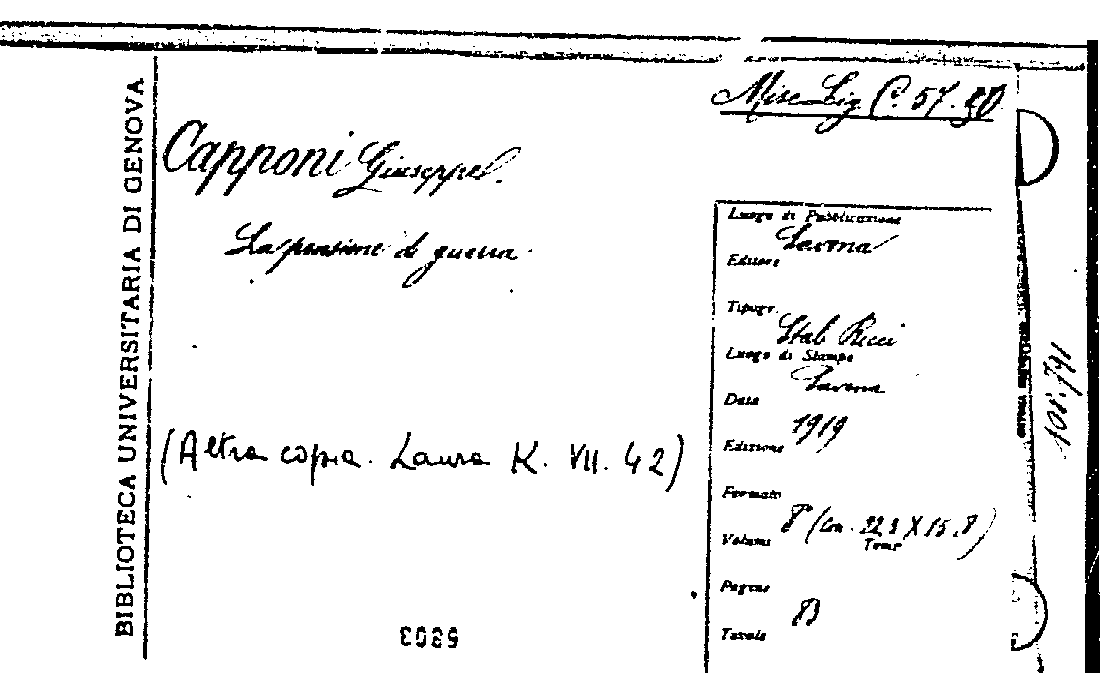 BIBLIOTECA UNIVERSITARIA DI GENOVA
Misc. Lig. C. 57.
Capponi Giuseppe.
La pensione di guerra.
Luogo di Pubblicazione
Savona
Editore
Tipogr.
Stab Ricci
Luogo di Stampa
Savona
Data
1919
Edizione
Formato
8° (cm. 22,3 X 15,8)
Volume
Tomo
Pagine
Tavole
(Altra copia. Laura K. VII. 42)
108.791